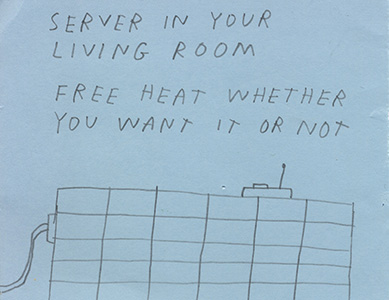 SERVER IN YOUR
LIVING ROOM
FREE HEAT WHETHER
YOU WANT IT OR NOT